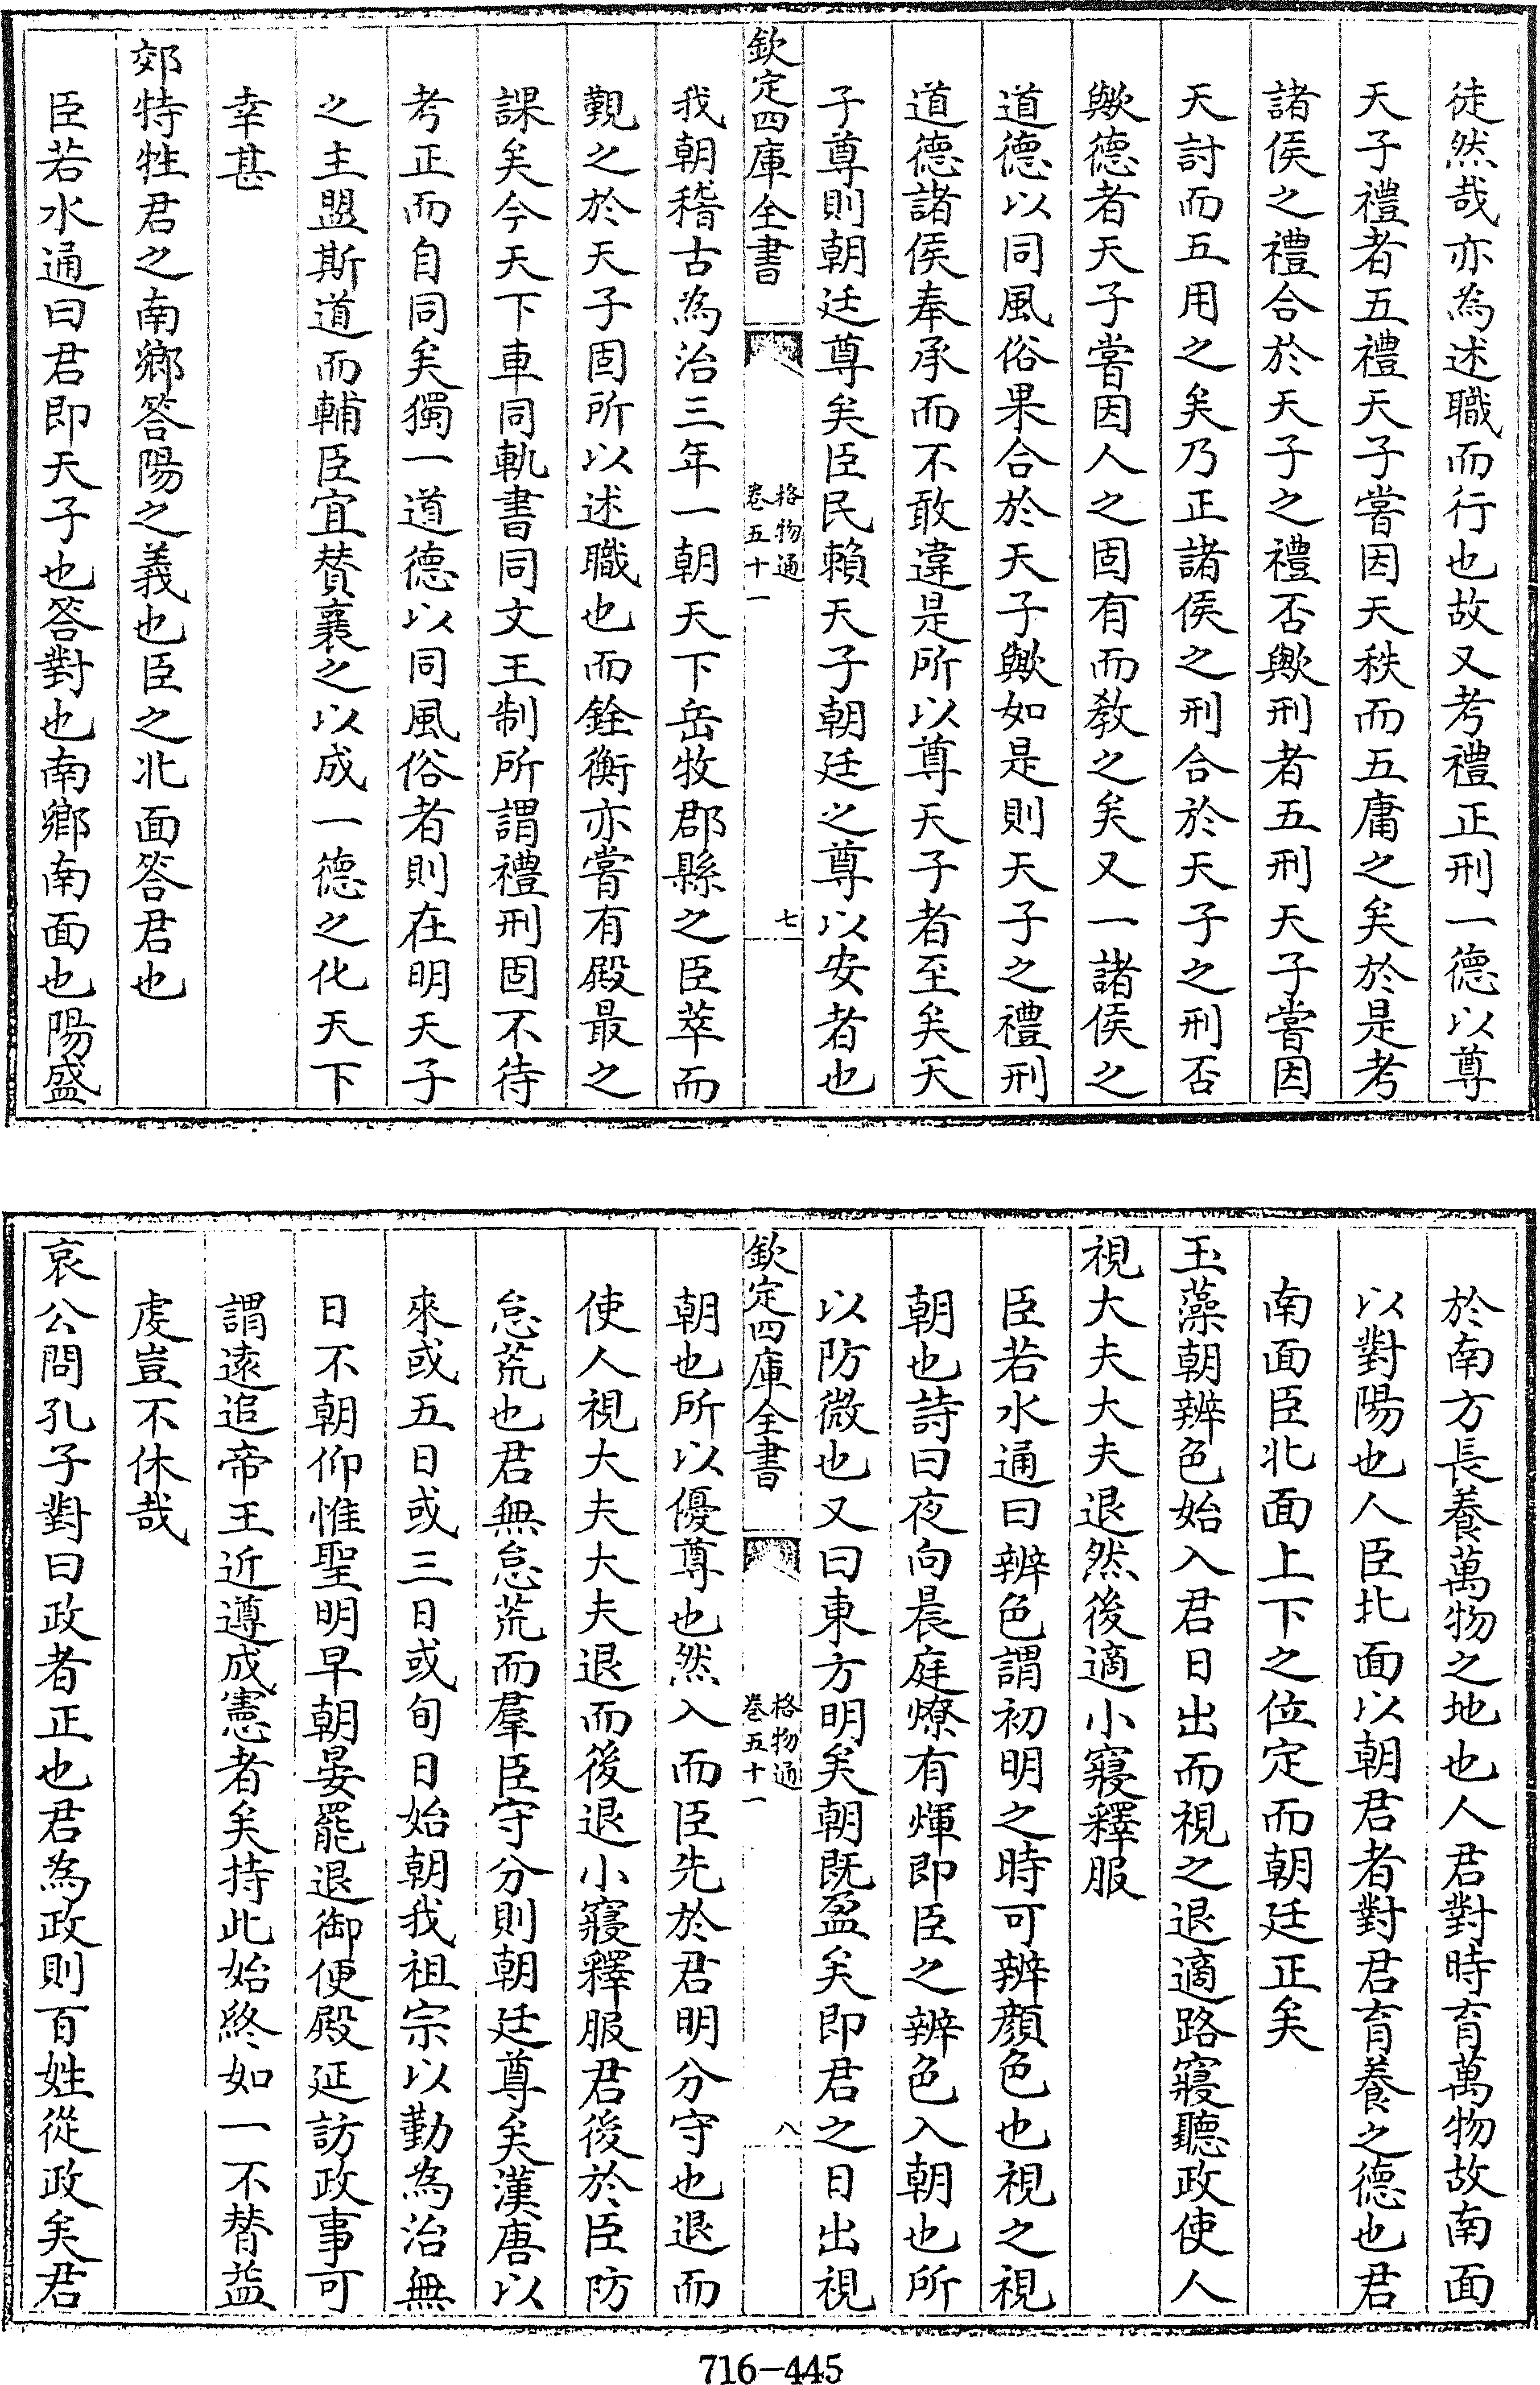 徒然哉亦為述職而行也故又考禮正刑一德以尊
天子禮者五禮天子嘗因天秩而五庸之矣於是考
諸侯之禮合於天子之禮否歟刑者五刑天子嘗因
天討而五用之矣乃正諸侯之刑合於天子之刑否
歟德者天子嘗因人之固有而教之矣又一諸侯之
道德以同風俗果合於天子歟如是則天子之禮刑
道德諸侯奉承而不敢違是所以尊天子者至矣天
子尊則朝廷尊矣臣民賴天子朝廷之尊以安者也
欽定四庫全書
格物通
卷五十一
七
我朝稽古為治三年一朝天下岳牧郡縣之臣萃而
覲之於天子固所以述職也而銓衡亦嘗有殿最之
課矣今天下車同軌書同文王制所謂禮刑固不待
考正而自同矣獨一道德以同風俗者則在明天子
之主盟斯道而輔臣宜贊襄之以成一德之化天下
幸甚
郊特牲君之南鄉答陽之義也臣之北面答君也
臣若水通曰君即天子也答對也南鄉南面也陽盛
於南方長養萬物之地也人君對時育萬物故南面
以對陽也人臣北面以朝君者對君育養之德也君
南面臣北面上下之位定而朝廷正矣
玉藻朝辨色始入君日出而視之退適路寢聽政使人
視大夫大夫退然後適小寢釋服
臣若水通曰辨色謂初明之時可辨顏色也視之視
朝也詩曰夜向晨庭燎有煇即臣之辨色入朝也所
以防微也又曰東方明矣朝既盈矣即君之日出視
欽定四庫全書
格物通
卷五十一
八
朝也所以優尊也然入而臣先於君明分守也退而
使人視大夫大夫退而後退小寢釋服君後於臣防
怠荒也君無怠荒而羣臣守分則朝廷尊矣漢唐以
來或五日或三日或旬日始朝我祖宗以勤為治無
日不朝仰惟聖明早朝晏罷退御便殿延訪政事可
謂遠追帝王近遵成憲者矣持此始終如一不替益
虔豈不休哉
哀公問孔子對曰政者正也君為政則百姓從政矣君
716-445